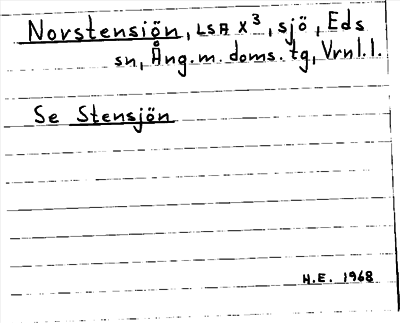 Norstensjön, LSA X³, sjö, Eds
sn, Ång.m. doms. tg, Vrnl.l.
Se Stensjön
H.E. 1968